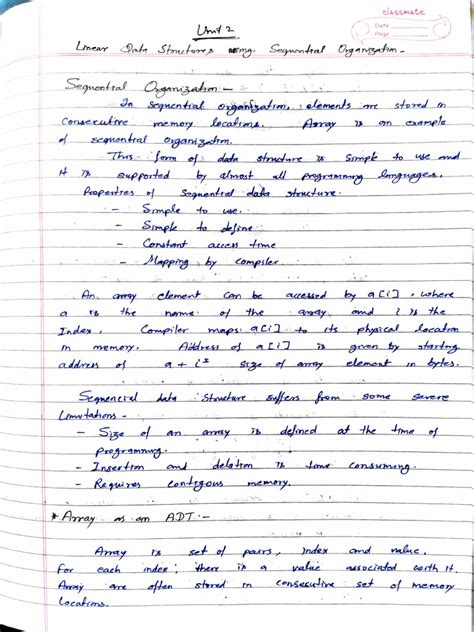 classmate
Date
Page
Unit 2
Linear Data Structures using Sequential Organization-
Sequential Organization:-
In sequential organization, elements are stored in
Consecutive memory locations. Array is an example
of sequential organization.
This form of data structure is simple to use and
it is supported by almost all programming languages.
Properties of sequential data structure.
- Simple to use.
- Simple to define
- Constant access time
- Mapping by compiler
An array element can be accessed by a[i], where
a is the name of the array and i is the
Index. Compiler maps a[i] to its physical location
in memory. Address of a[i] is given by starting
address of a + i * size of array element in bytes.
Sequencial data structure suffers from some severe
limitations-
- Size of an array is defined at the time of
programming.
- Insertion and deletion is time consuming.
- Requires contigous memory.
* Array as an ADT:-
Array is set of pairs, index and value.
For each index, there is a value associated with it.
Array are often stored in consecutive set of memory
locations.